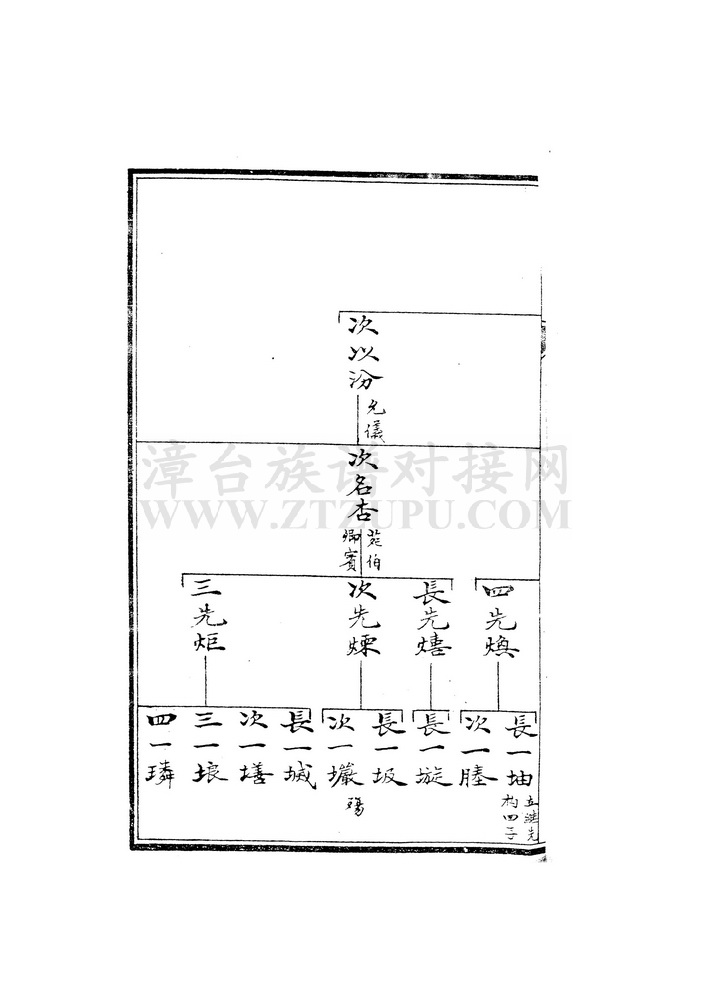 次以汾
允儀
次名杏
苑伯
卿賓
四先煥
長先熺
次先煉
三先炬
長一㘰
立継先
杓四子
次一塍
長一璇
長一圾
次一巖
殤
長一城
次一墡
三一埌
四一璘
漳台族谱对接网
WWW.ZTZUPU.COM